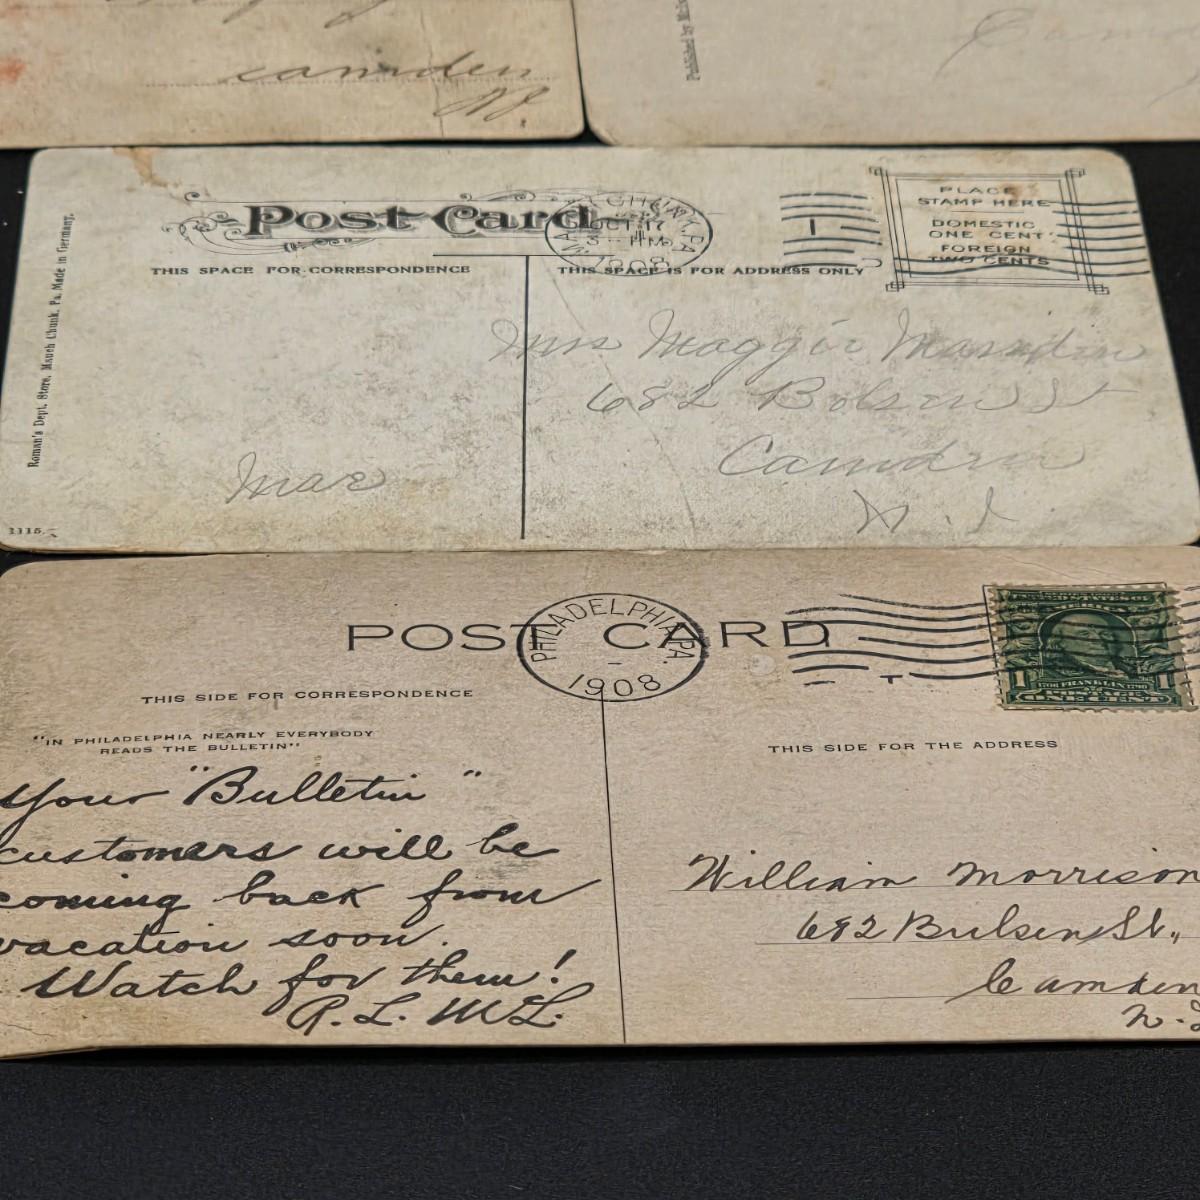 camden
N.J.
Published by
Post Card
MAUCH CHUNK, PA.
OCT 17
3 - PM
1908
PLACE
STAMP HERE
DOMESTIC
ONE CENT
FOREIGN
TWO CENTS
THIS SPACE FOR CORRESPONDENCE
THIS SPACE IS FOR ADDRESS ONLY
Roman's Dept. Store, Mauch Chunk, Pa. Made in Germany.
Mrs Maggie
682 St
Camden
N.J.
Mae
1115.
POST CARD
PHILADELPHIA, PA.
1908
1 1
ONE CENT
THIS SIDE FOR CORRESPONDENCE
"IN PHILADELPHIA NEARLY EVERYBODY
READS THE BULLETIN"
THIS SIDE FOR THE ADDRESS
Your "Bulletin"
customers will be
coming back from
vacation soon.
Watch for them!
R. L. McL.
William Morrison
682 Bulsen St.,
Camden
N.J